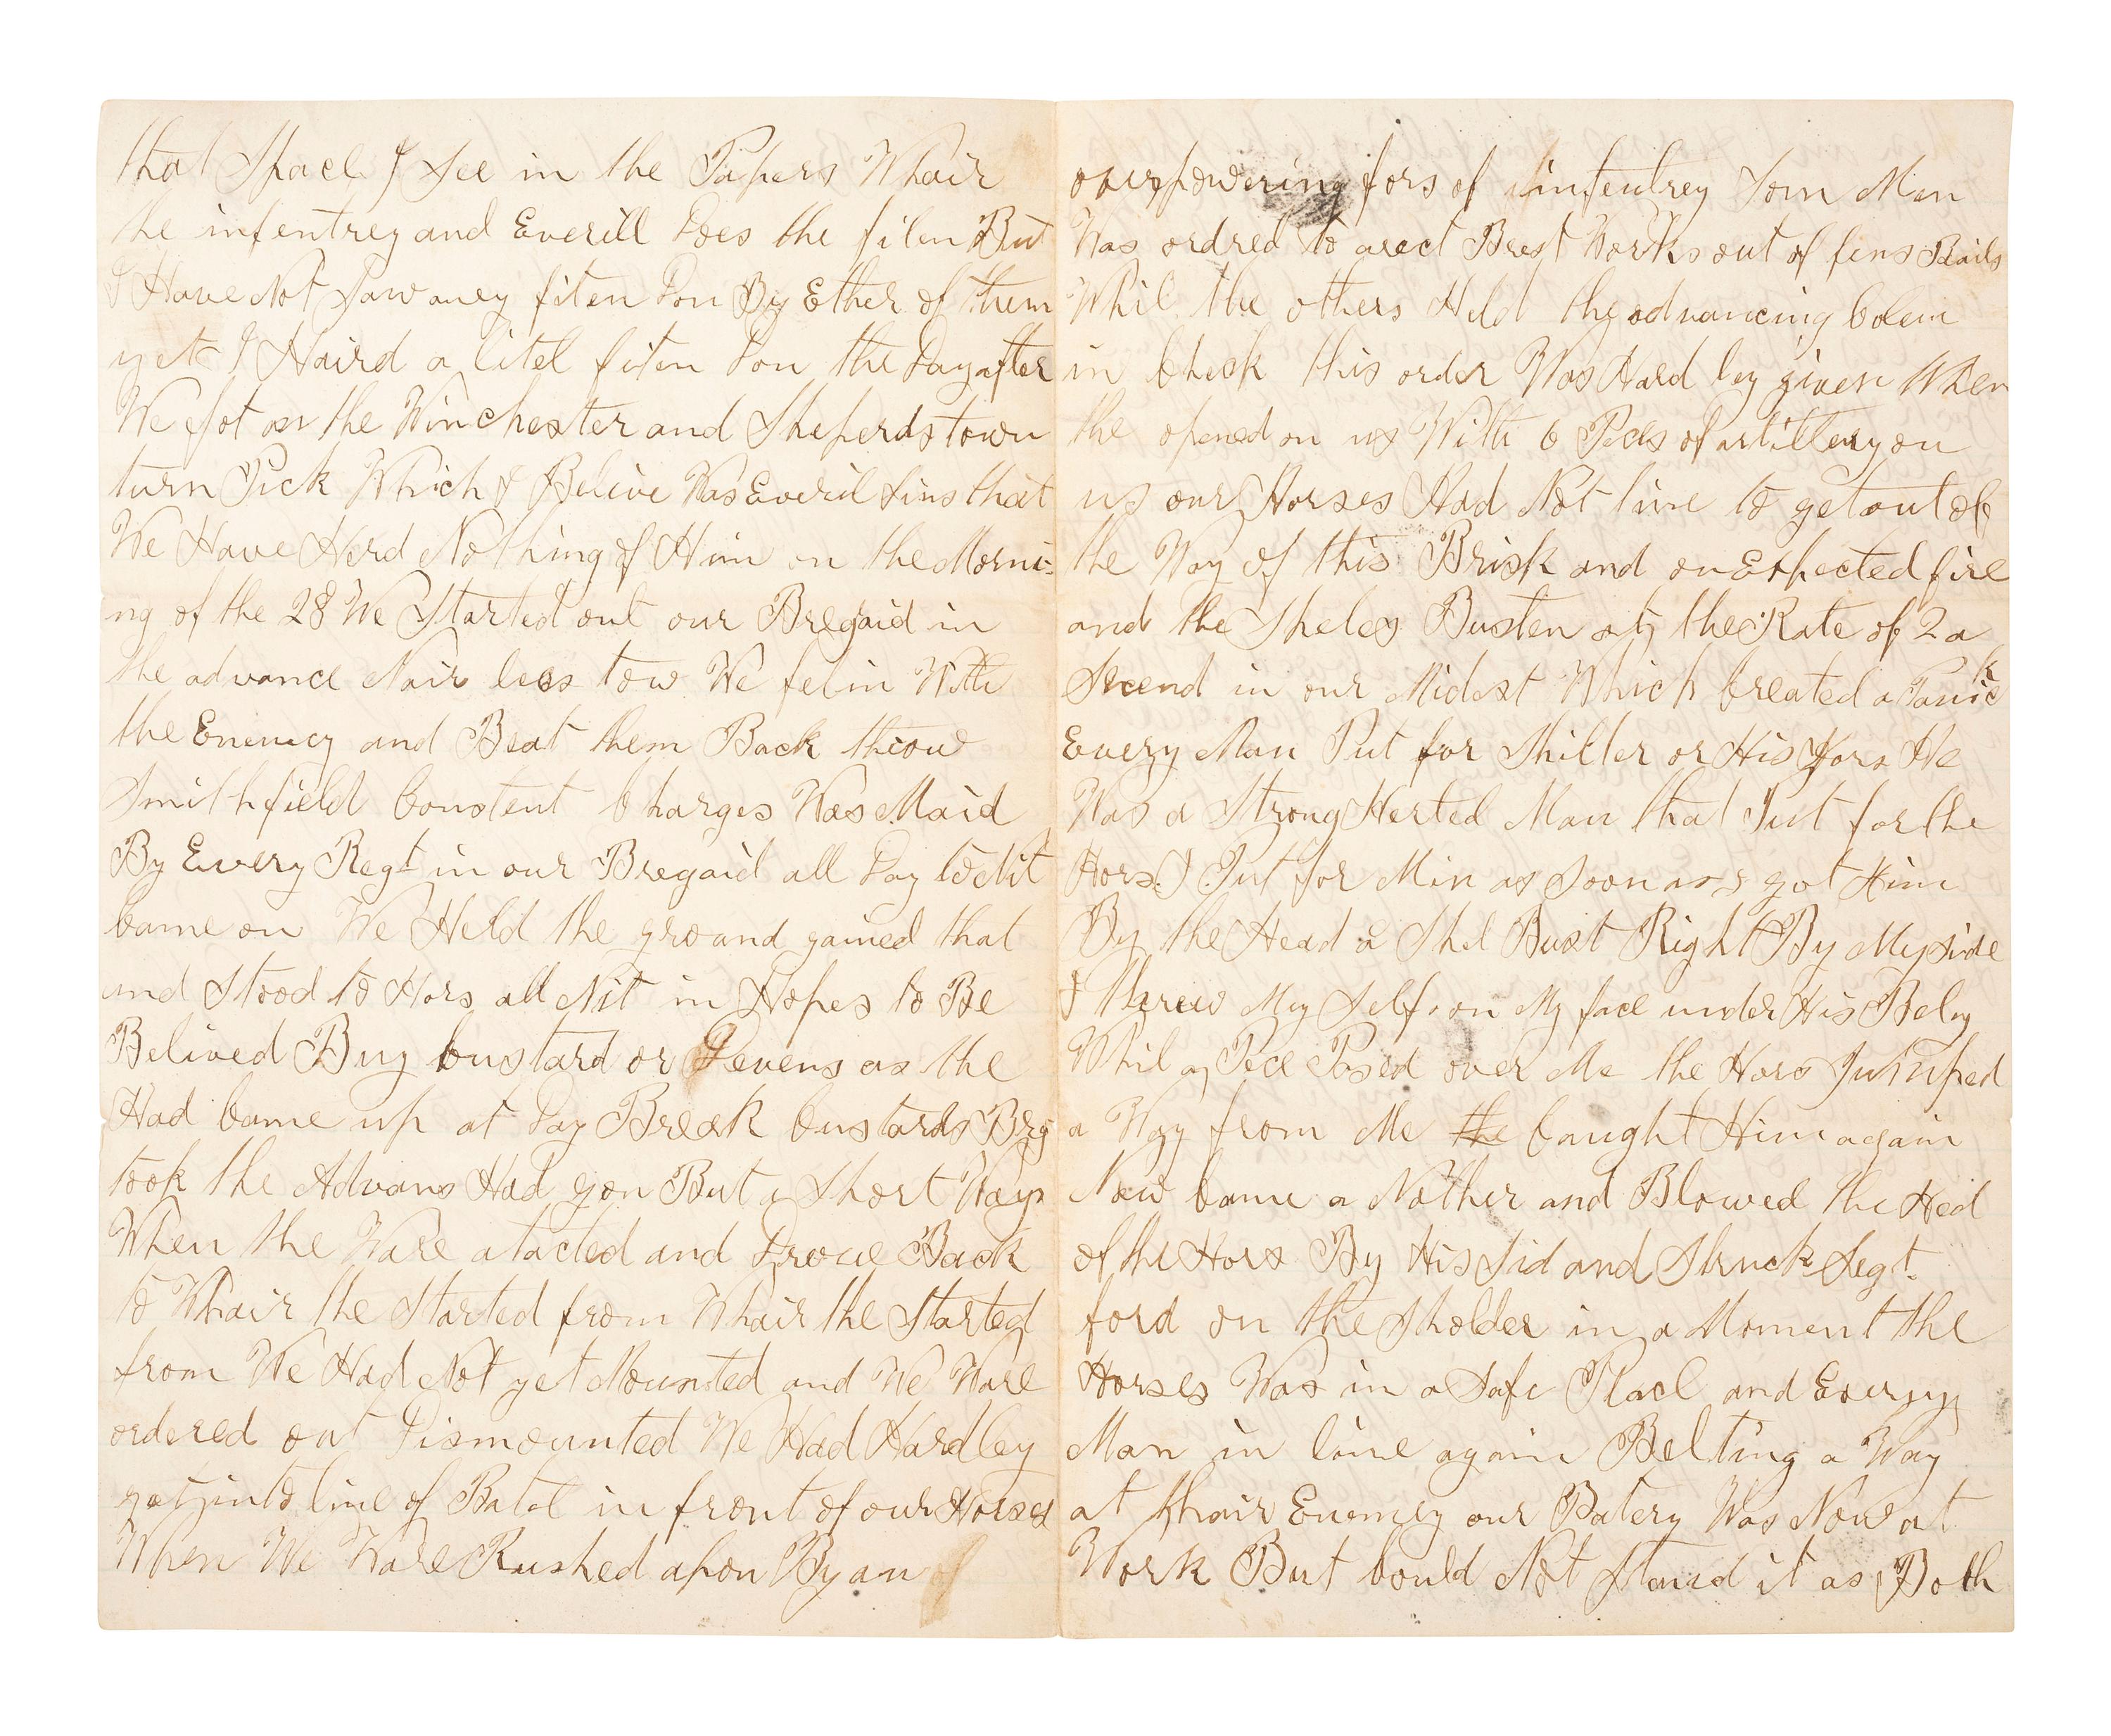 that Space I See in the Papers Whair
the infentrey and Everill Does the fiten But
I Have Not Saw aney fiten Don By Ether of them
yet I Haird a litel fiten Don the Day after
We fot on the Winchester and Sheperdstown
turn Pick Which I Belive Was Everil Sins that
We Have Herd Nothing of Him on the Morni-
ng of the 28 We Started out our Bregaid in
the advance Nair lees tow We fel in With
the Enemey and Beat them Back throw
Smithfield Constent Charges Was Maid
By Every Regt in our Bregaid all Day to Nit
Came on We Held the groand gained that
and Stood to Hors all Nit in Hopes to Be
Relived Buy Custard or Devens as the
Had Came up at Day Break Custards Brg
took the Advans Had gon But a Short Ways
When the Ware atacted and Drove Back
to Whair the Started from Whair the Started
from We Had Not yet Mounted and We Ware
ordered out Dismounted We Had Hardley
got into line of Batel in front of our Horses
When We Ware Rushed apon By an
overpowering fors of infentrey Som Men
Was ordred to arect Brest Works out of fens Rails
Whil the others Held the advancing Colem
in Check this order Was Hardley given When
the opened on us With 6 Peces of artillery on
us our Horses Had Not time to get out of
the Way of this Brisk and onExpected fire
and the Sheles Busten at the Rate of 2 a
Secend in our Midest Which Created a Panick
Every Man Put for Shilter or His Hors He
Was a Strong Herted Man that Put for the
Hors I Put for Min as Soon as I got Him
By the Head a Shel Bust Right By My side
I threw My Self on My face under His Beley
Whil a Pece Pased over Me the Hors Jumped
a Way from Me the Caught Him again
Now Came a Nother and Blowed the Hed
of the Hors By His Sid and Struck Segt.
ford on the Sholder in a Moment the
Horses Was in a Safe Place and Every
Man in line again Belting a Way
at thair Enemey our Batery Was Now at
Work But Could Not Stand it as Both